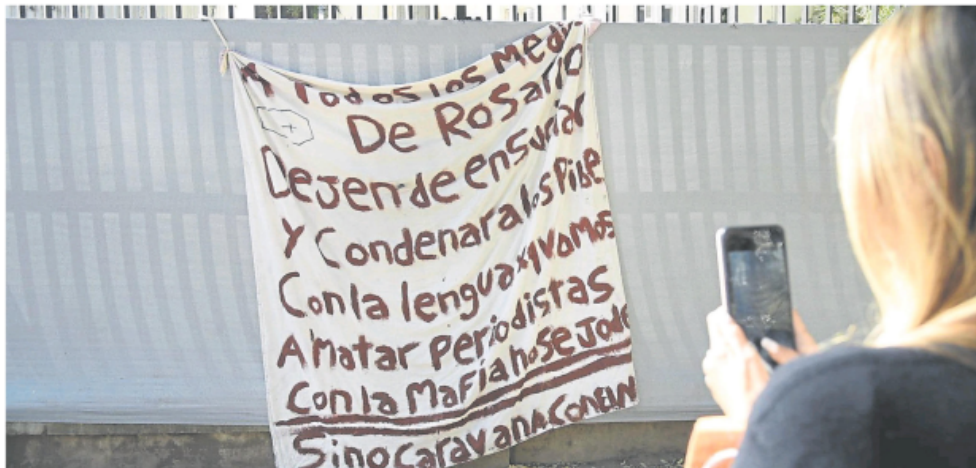 A Todos los Medi
De Rosario
Dejen de ensuciar
Y Condenar a los Pibe
Con la lengua x q vamos
A Matar Periodistas
Con la Mafia no se Jode
Sino Caravana Con